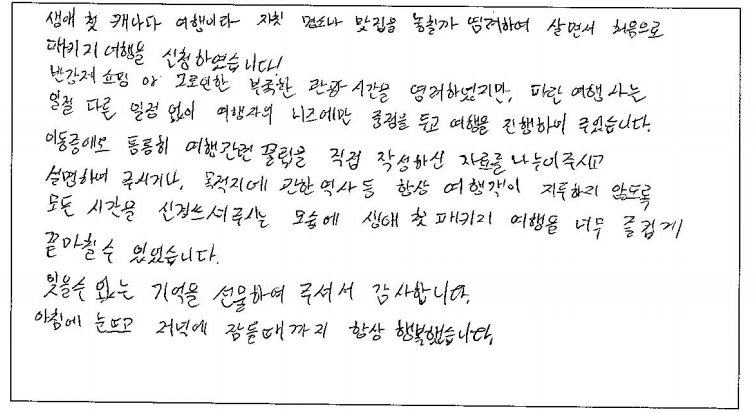 생애 첫 캐나다 여행이라 자칫 명소나 맛집을 놓칠까 염려하여 살면서 처음으로
패키지 여행을 신청하였습니다!
반강제 쇼핑 or 그로인한 부족한 관광시간을 염려하였지만, 파란 여행사는
일절 다른 일정 없이 여행자의 니즈에만 중점을 두고 여행을 진행하여 주었습니다.
이동중에도 틈틈히 여행관련 꿀팁을 직접 작성하신 자료를 나누어주시고
설명하여 주시거나, 목적지에 관한 역사 등 항상 여행객이 지루하지 않도록
모든 시간을 신경쓰셔주시는 모습에 생애 첫 패키지 여행을 너무 즐겁게
끝마칠 수 있었습니다.
잊을수 없는 기억을 선물하여 주셔서 감사합니다.
아침에 눈뜨고 저녁에 잠들때까지 항상 행복했습니다.